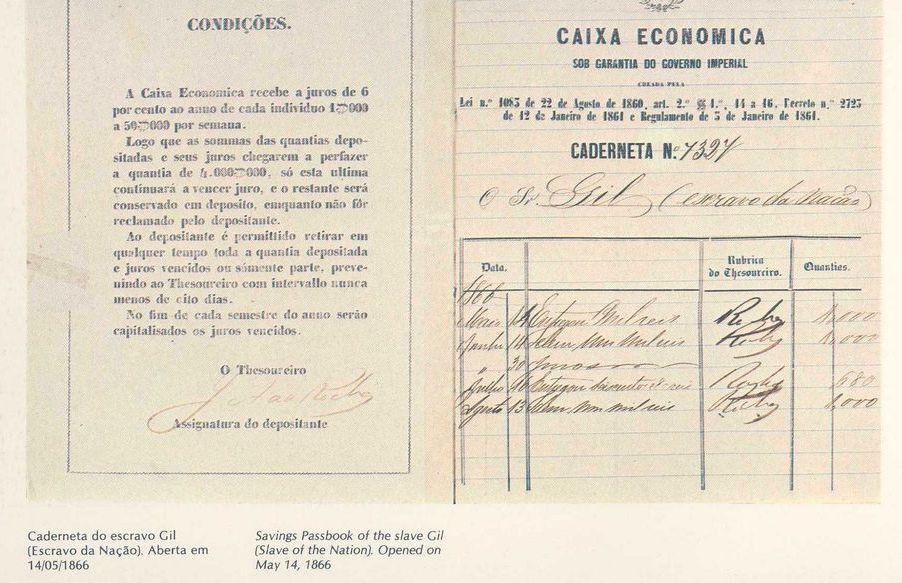 CONDIÇÕES.
A Caixa Economica recebe a juros de 6
por cento ao anno de cada individuo 1$000
a 50$000 por semana.
Logo que as sommas das quantias depo-
sitadas e seus juros chegarem a perfazer
a quantia de 4.000$000, só esta ultima
continuará a vencer juro, e o restante será
conservado em deposito, emquanto não fôr
reclamado pelo depositante.
Ao depositante é permittido retirar em
qualquer tempo toda a quantia depositada
e juros vencidos ou sómente parte, preve-
nindo ao Thesoureiro com intervallo nunca
menos de oito dias.
No fim de cada semestre do anno serão
capitalisados os juros vencidos.
O Thesoureiro
Assignatura do depositante
CAIXA ECONOMICA
SOB GARANTIA DO GOVERNO IMPERIAL
CREADA PELA
Lei n.º 1083 de 22 de Agosto de 1860, art. 2.º §§ 1.º, 14 a 16, Decreto n.º 2723
de 12 de Janeiro de 1861 e Regulamento de 5 de Janeiro de 1861.
CADERNETA N.º 7327
O Sr. Gil (escravo da Nação)
Data. Rubrica do Thesoureiro. Quantias.
1866
Maio 14 Entregou Mil reis Rocha 1,000
Junho Idem, Um Mil reis Rocha 1,000
" 30
Julho Entregou reis Rocha 680
Agosto 13 Idem, Um mil reis Rocha 1,000
Caderneta do escravo Gil
(Escravo da Nação). Aberta em
14/05/1866
Savings Passbook of the slave Gil
(Slave of the Nation). Opened on
May 14, 1866